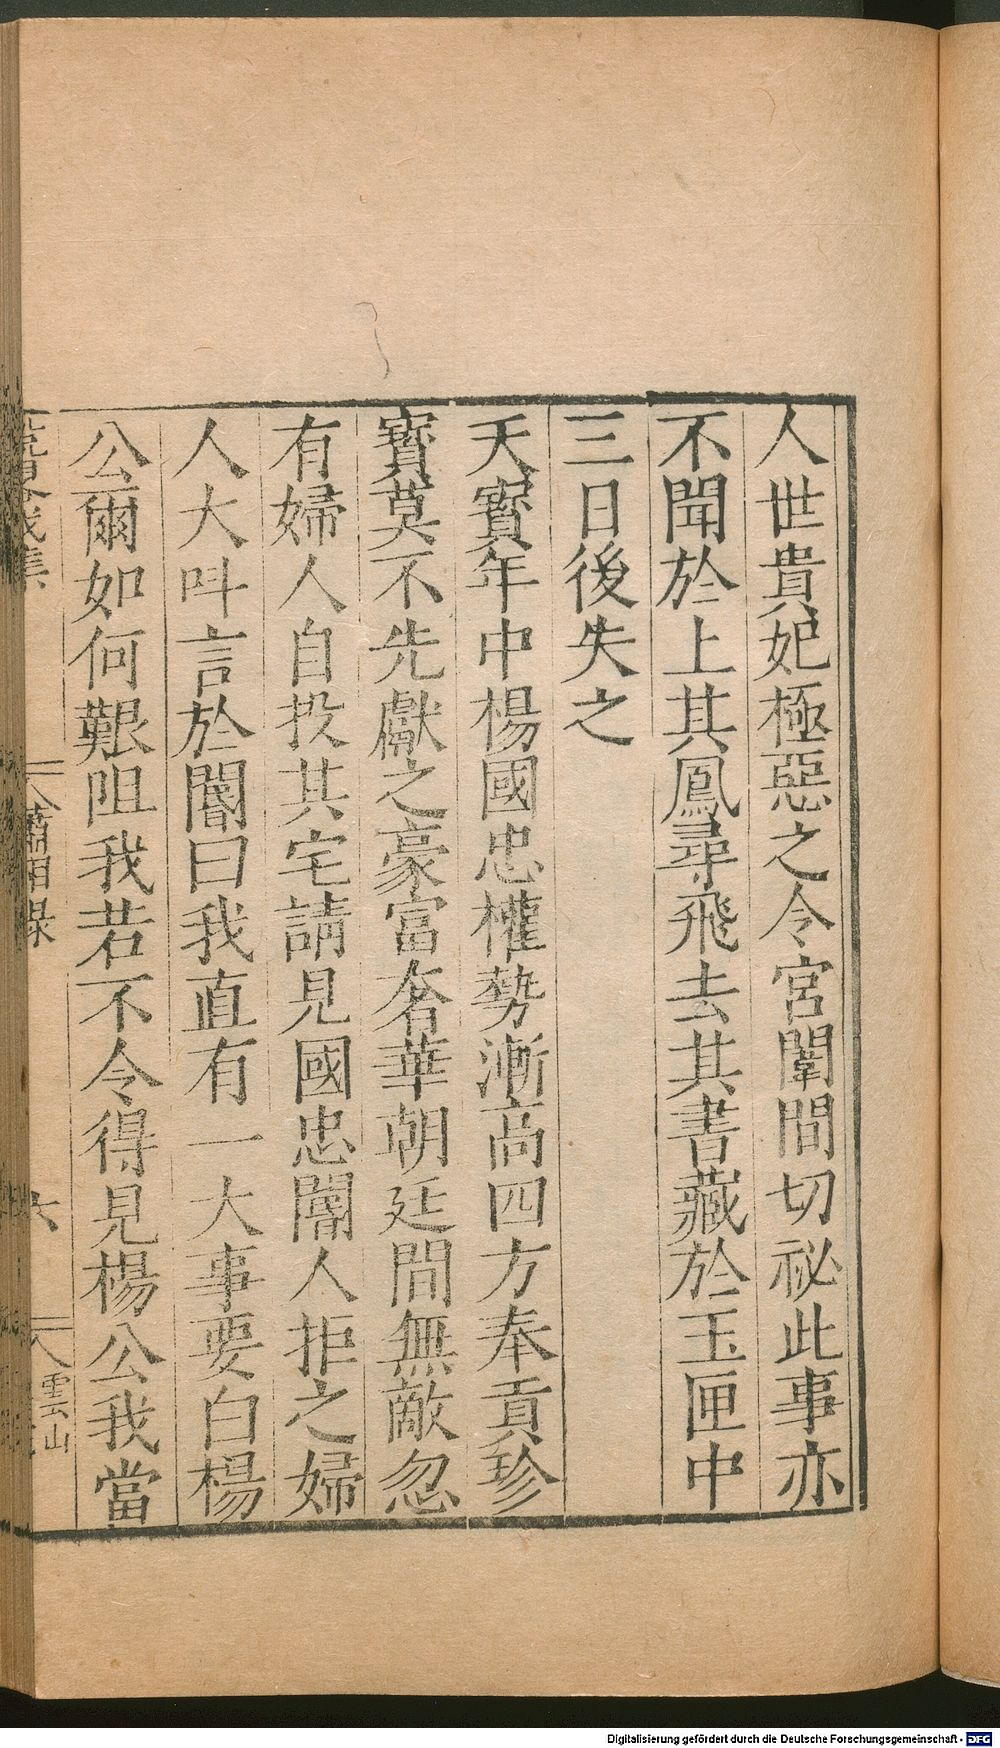 人世貴妃極惡之令宮闈間切祕此事亦
不聞於上其鳳尋飛去其書藏於玉匣中
三日後失之
天寳年中楊國忠權勢漸高四方奉貢珍
寳莫不先獻之豪富奢華朝廷間無敵忽
有婦人自投其宅請見國忠閽人拒之婦
人大呌言於閽曰我直有一大事要白楊
公爾如何艱阻我若不令得見楊公我當
瀟湘錄
六
雲山
Digitalisierung gefördert durch die Deutsche Forschungsgemeinschaft - DFG